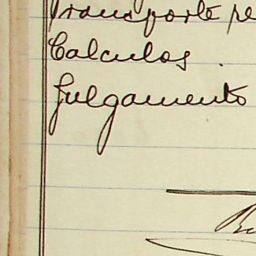 Transporte pe
Calculos
Julgamento